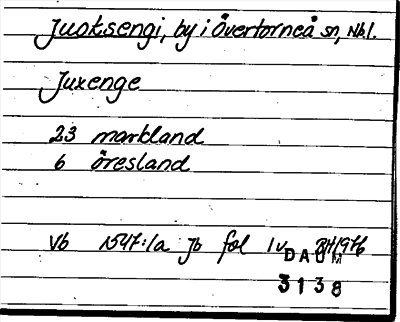 Juoksengi, by i Övertorneå sn, Nbl.
Juxenge
23 markland
6 öresland
Vb 1547:1a Jb fol 1v BH1976
DAUM
3138